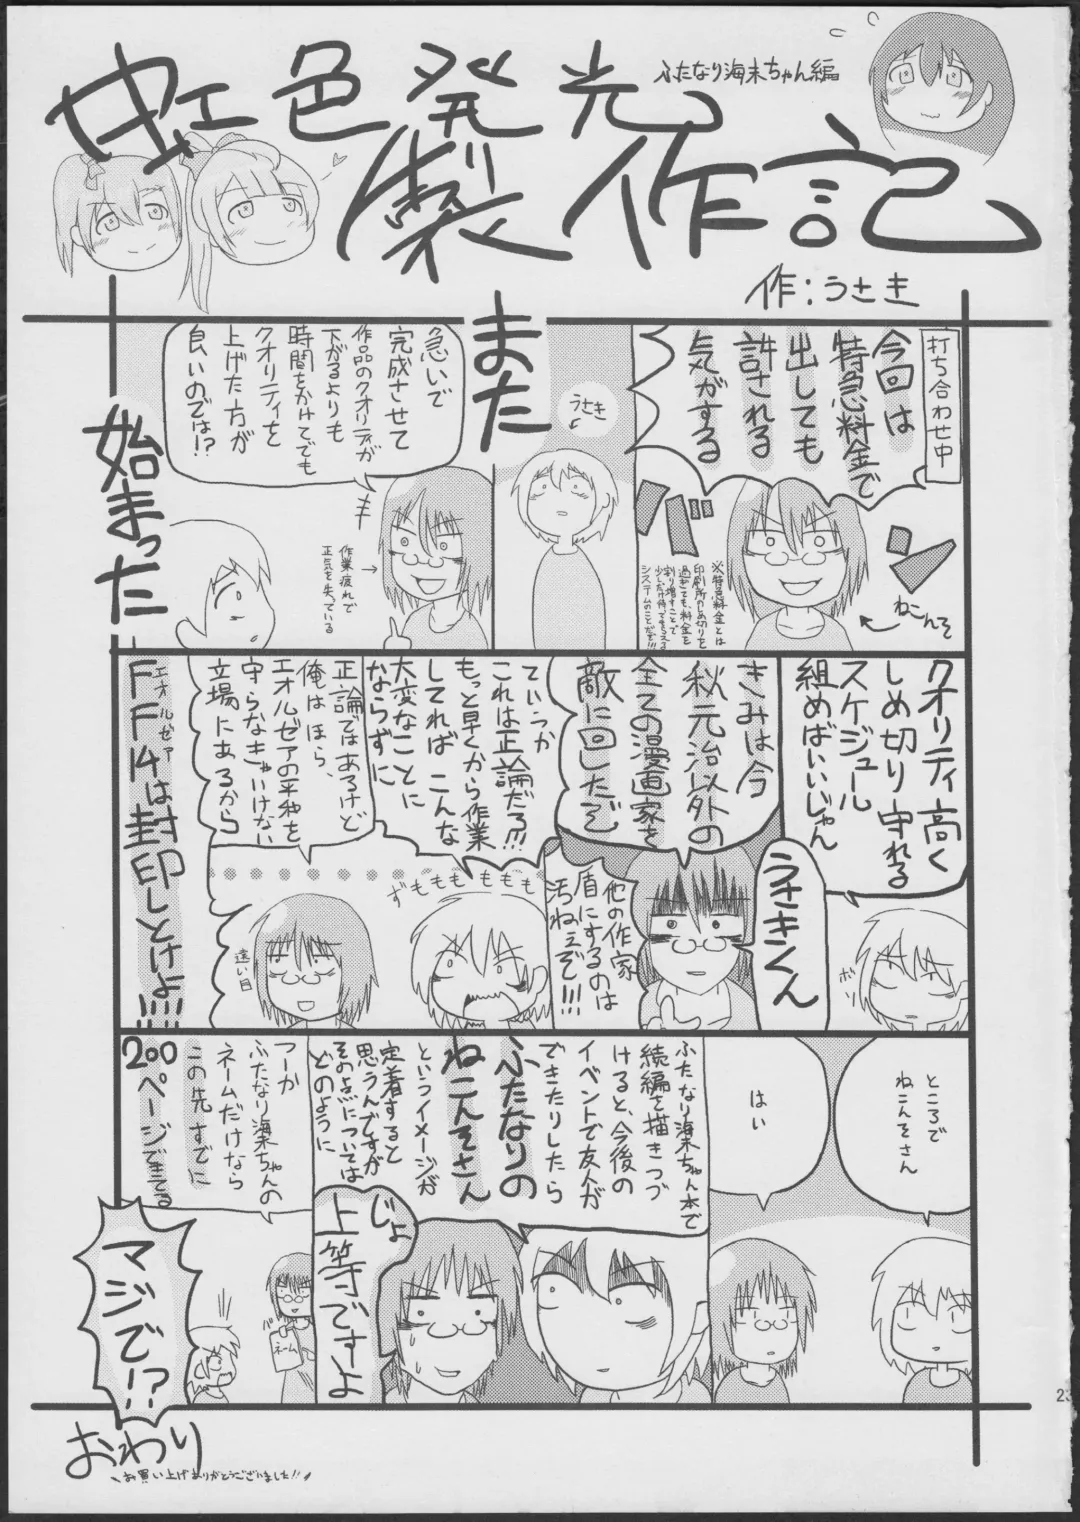 虹色発光
製作記
ふたなり海未ちゃん編
作:うさき
打ち合わせ中
今回は
特急料金で
出しても
許される
気がする
バ
ン
ねこんそ
※特急料金とは
印刷所のしめ切りを
過ぎても、料金を
割り増すことで
少しだけ待ってもらえる
システムのことだぞ!!!
うさき
また
急いで
完成させて
作品のクオリティが
下がるよりも
時間をかけてでも
クオリティを
上げた方が
良いのでは!?
作業疲れで
正気を失っている
始まった
クオリティ高く
しめ切り守れる
スケジュール
組めばいいじゃん
ボソ
うさきくん
きみは今
秋元治以外の
全ての漫画家を
敵に回したぞ
他の作家
盾にするのは
汚ねぇぞ!!!
ていうか
これは正論だろ!!!
もっと早くから作業
してれば こんな
大変なことに
ならずに
ずももももももも
正論ではあるけど
俺は ほら、
エオルゼアの平和を
守らなきゃいけない
立場にあるから
遠い目
エオルゼア
FF14は封印しとけよ!!!!
ところで
ねこんそさん
はい
ふたなり海未ちゃん本で
続編を描きつづ
けると、今後の
イベントで友人が
できたりしたら
ふたなりの
ねこんそさん
というイメージが
定着すると
思うんですが
その点については
どのように
じょ
上等ですよ
つーか
ふたなり海未ちゃんの
ネームだけなら
この先すでに
200ページできてる
バッ
ネーム
マジで!?
おわり
お買い上げありがとうございました!!
23